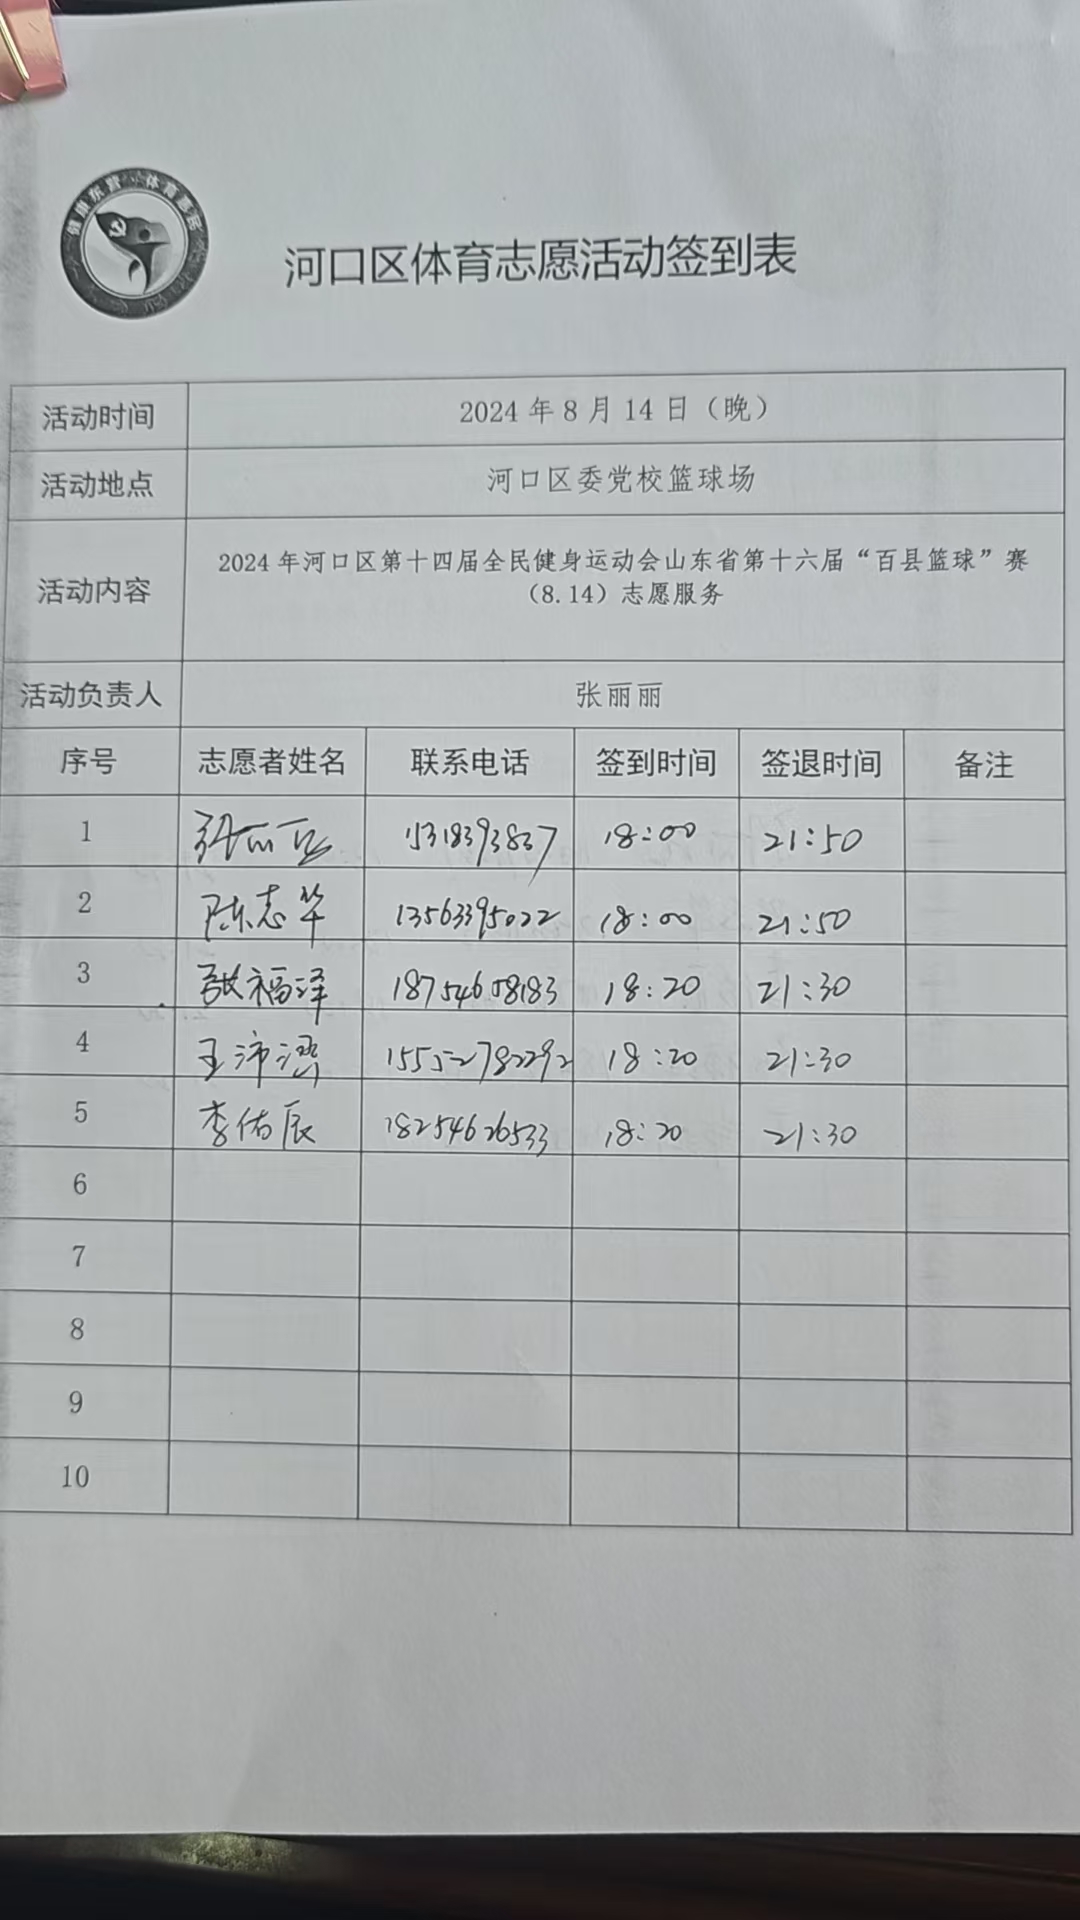 健康东营 体育惠民
河口区体育志愿活动签到表
活动时间 2024年8月14日（晚）
活动地点 河口区委党校篮球场
活动内容 2024年河口区第十四届全民健身运动会山东省第十六届“百县篮球”赛
（8.14）志愿服务
活动负责人 张丽丽
序号 志愿者姓名 联系电话 签到时间 签退时间 备注
1 张丽丽 15318393837 18:00 21:50
2 陈志华 13563395022 18:00 21:50
3 张福泽 18754658183 18:20 21:30
4 王沛 15552782292 18:20 21:30
5 李佑辰 18254626533 18:20 21:30
6
7
8
9
10